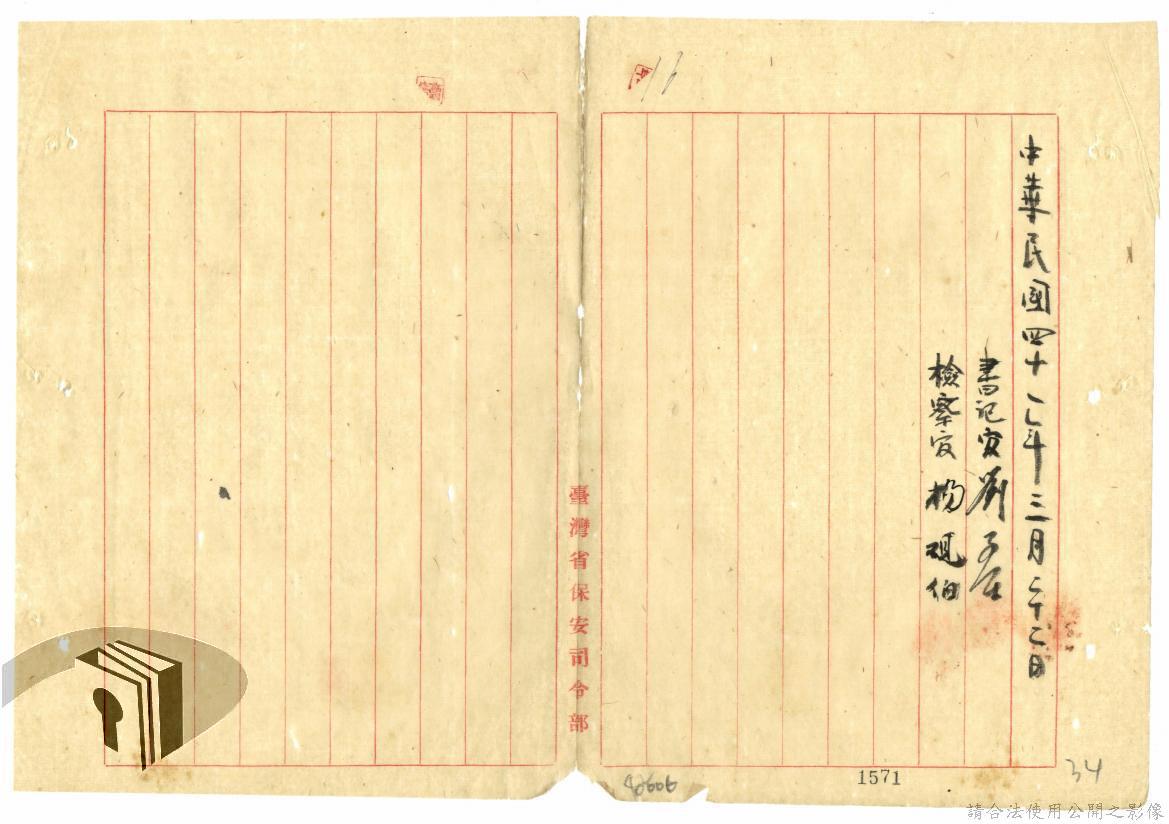 16
中華民國四十一年三月二十二日
書記官 劉
檢察官 楊 硯伯
臺灣省保安司令部
1571
34
請合法使用公開之影像